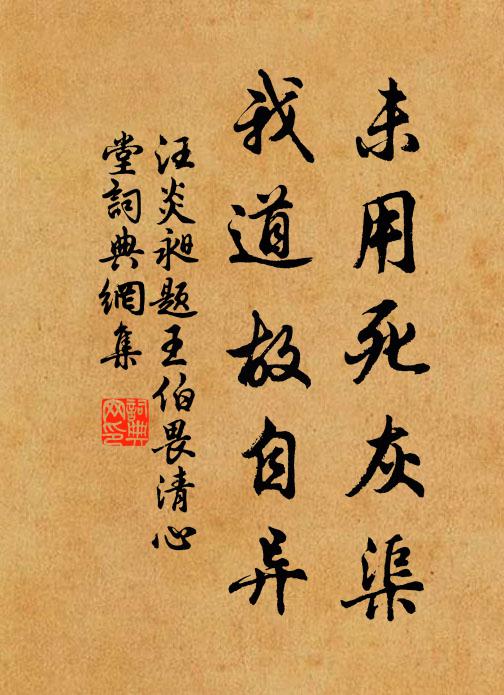 未用死灰渠
我道故自异
汪炎昶题王伯畏清心
堂詞典網集
詞典
网印